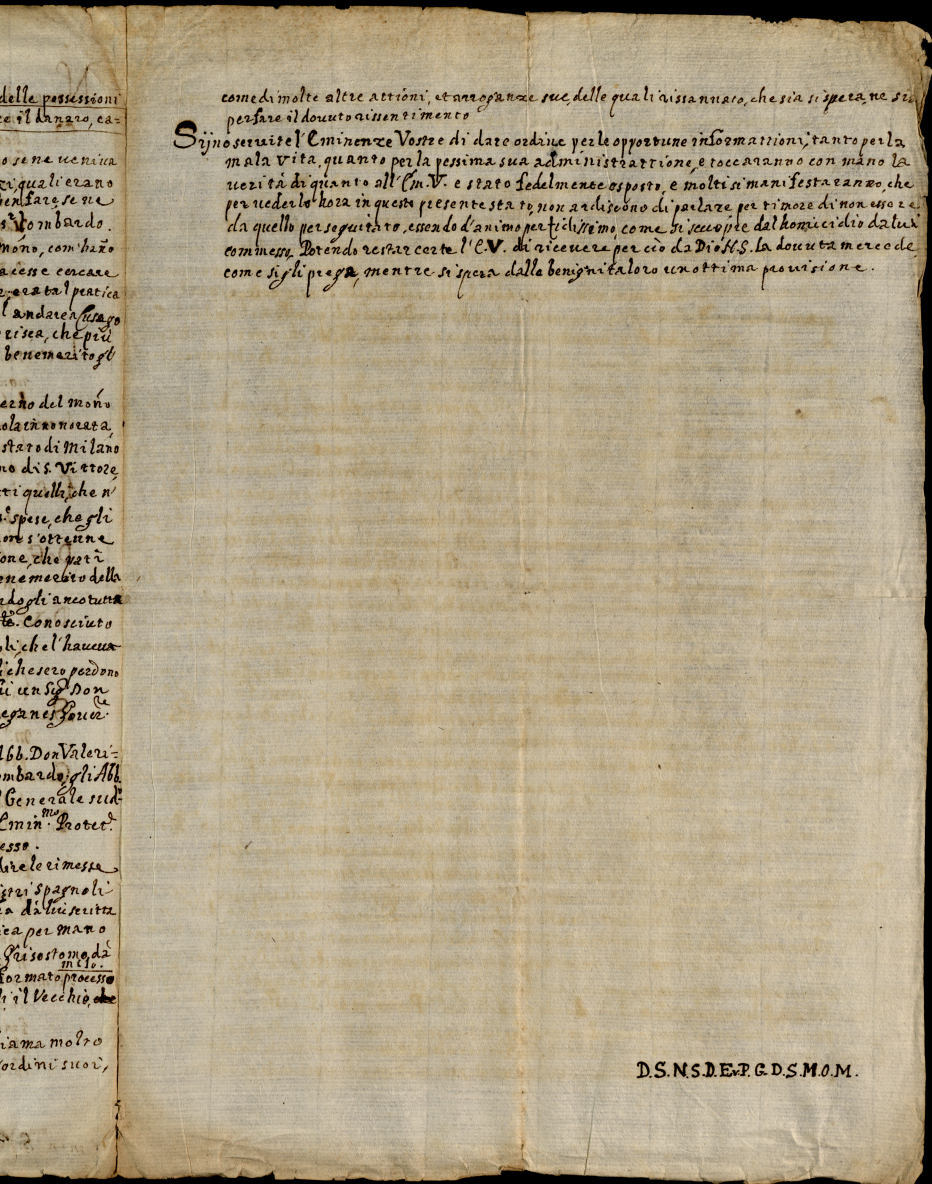 delle possessioni
re il danaro, ca=
o se ne veniva
zi quali erano
ben fare, se ne
s.r Lombardo.
mono, com'hano
acesse cercare
era tal pratica
l andare a Cusago
risea, che più
benemerito gl'
erno del mono
ola innonorata
stato di Milano
no di S. Vittore
ti quelli, che n'
spese, che gli
non s'ottenne
one, che patì
enemerito della
dogli anco tutta
Conosciuto
li, che l'haveva
i che sero perdono
un Sig.r Don
eganes Gover.re
Abb. Don Valeri=
ombardo, gli Abb.
Generale sud.
Emin.mo Protet.
esso.
dire le rimesse
istri spagnoli
a da lui scritta
ica per mano
Grisostomo, da
m.lo.
formato processo
li il Vecchio, che
iama molto
ordini suoi,
come di molte altre attioni, et arroganze sue, delle quali vissannato, che sia si spera, ne
per fare il dovuto rissentimento
Sijno servite l'Eminenze Vostre di dare ordine per le opportune informattioni, tanto per la
mala vita, quanto per la pessima sua administrattione, e toccaranno con mano la
verità di quanto all'Em.V. e stato fedelmente esposto, e molti si manifestaranno, che
per vederlo hora in questo presente stato, non ardiscono di parlare per timore di non essere
da quello perseguitato, essendo d'animo perfidissimo, come si scuopre dal homicidio da lui
commesso. Potendo restar certe l'E.V. di ricevere per cio da Dio N.S. la dovuta mercede,
come si gli prega, mentre si spera dalla benignita loro un ottima provisione.
D.S.N.S.D.E.P.G.D.S.M.O.M.